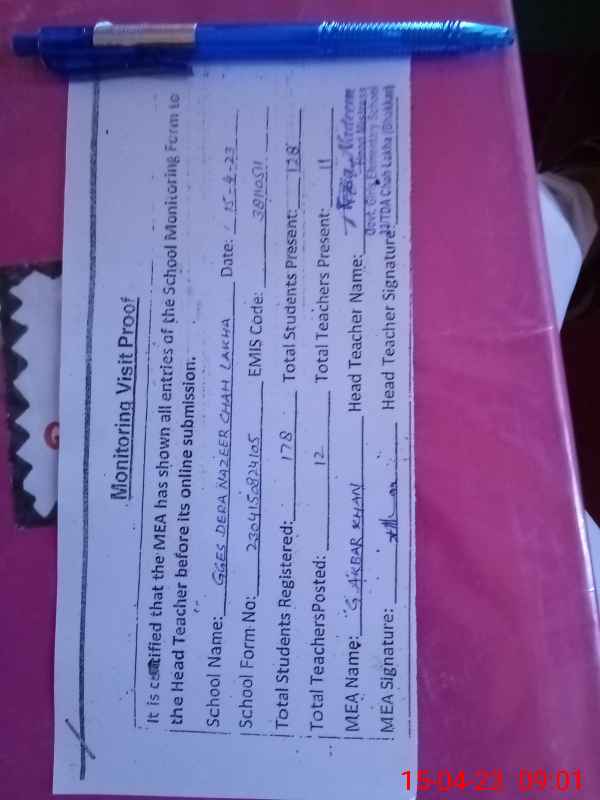 Monitoring Visit Proof
It is certified that the MEA has shown all entries of the School Monitoring Form to
the Head Teacher before its online submission.
School Name: GGES DERA NAZEER CHAH LAKHA Date: 15-4-23
School Form No: 2304150824105 EMIS Code:
Total Students Registered: 178 Total Students Present: 128
Total TeachersPosted: 12 Total Teachers Present: 11
MEA Name: G. AKBAR KHAN Head Teacher Name:
Head Mistress
Govt. Girls Elementary School
Chah Lakha (Bhakkar)
MEA Signature: Head Teacher Signature:
15-04-23 09:01